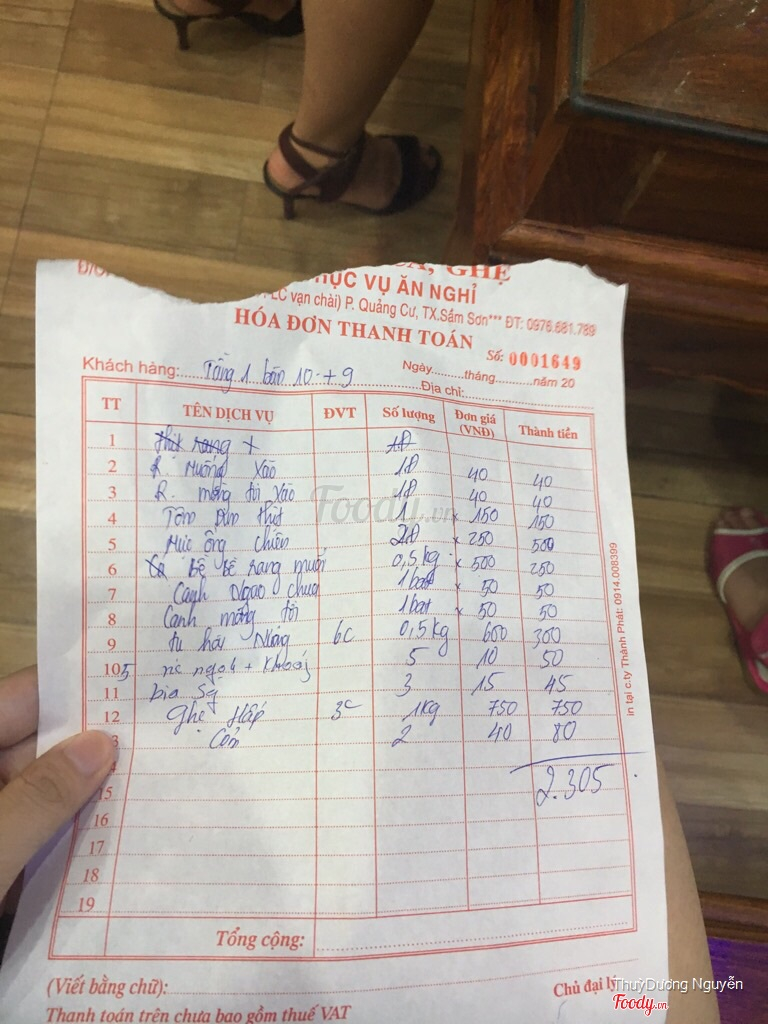 CÁ, GHẸ
PHỤC VỤ ĂN NGHỈ
LC vạn chài) P. Quảng Cư, TX.Sầm Sơn*** ĐT: 0976.681.789
HÓA ĐƠN THANH TOÁN
Số: 0001649
Ngày..........tháng..........năm 20
Khách hàng: Tầng 1 bàn 10 + 9 Địa chỉ:
TT TÊN DỊCH VỤ ĐVT Số lượng Đơn giá (VNĐ) Thành tiền
1 thịt rang
2 R. Muống xào 1đ 40 40
3 R. mồng tơi xào 1đ 40 40
4 Tôm rim thịt 1 x 150 150
5 Mực ống chiên 2đ x 250 500
6 bề bề rang muối 0,5kg x 500 250
7 Canh Ngao chua 1bát x 50 50
8 Canh mồng tơi 1bát x 50 50
9 tu hài nướng 6c 0,5kg 600 300
10 nc ngọt + khoáng 5 10 50
11 bia Sg 3 15 45
12 Ghẹ Hấp 3c 1kg 750 750
3 Cơm 2 40 80
4 2.305
15
16
17
18
19
Tổng cộng:
(Viết bằng chữ):
Thanh toán trên chưa bao gồm thuế VAT
Chủ đại lý
in tại c.ty Thành Phát: 0914.008399
Foody.vn
ThuỳDương Nguyễn
Foody.vn